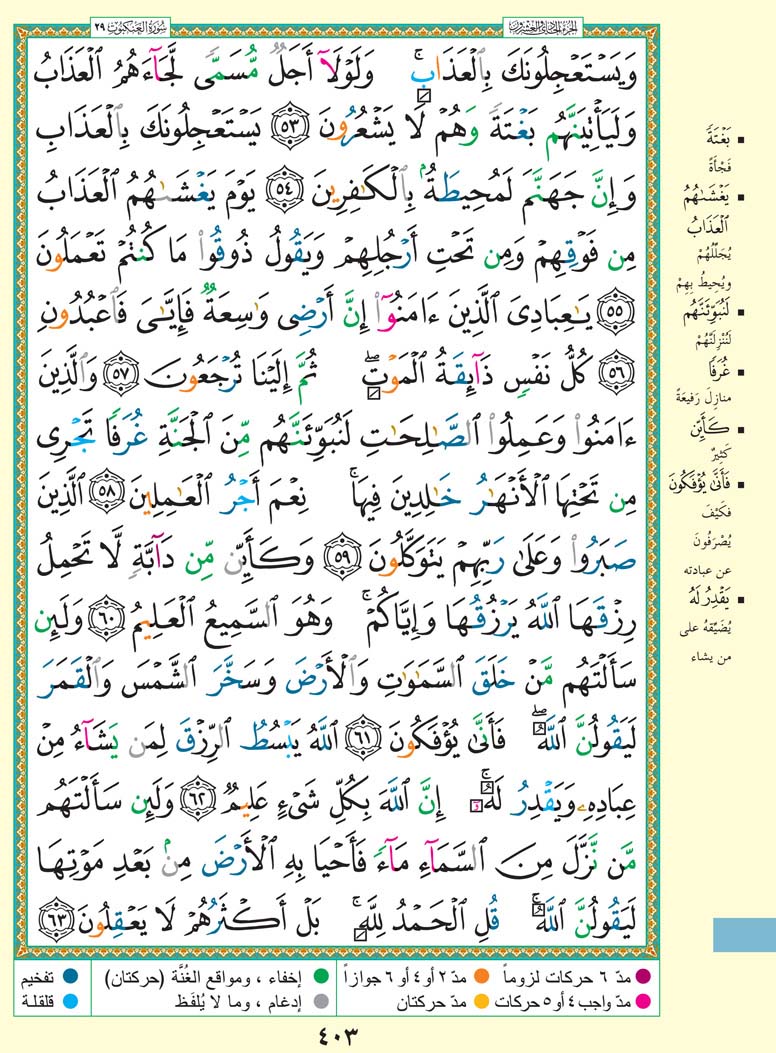 سُورَةُ العَنكبوت ٢٩
الجزء الحادي والعشرون
وَيَسْتَعْجِلُونَكَ بِالْعَذَابِ ۚ وَلَوْلَآ أَجَلٌ مُّسَمًّى لَّجَآءَهُمُ الْعَذَابُ
وَلَيَأْتِيَنَّهُم بَغْتَةً وَهُمْ لَا يَشْعُرُونَ ٥٣ يَسْتَعْجِلُونَكَ بِالْعَذَابِ
وَإِنَّ جَهَنَّمَ لَمُحِيطَةٌۢ بِالْكَٰفِرِينَ ٥٤ يَوْمَ يَغْشَىٰهُمُ الْعَذَابُ
مِن فَوْقِهِمْ وَمِن تَحْتِ أَرْجُلِهِمْ وَيَقُولُ ذُوقُوا۟ مَا كُنتُمْ تَعْمَلُونَ
٥٥ يَٰعِبَادِىَ الَّذِينَ ءَامَنُوٓا۟ إِنَّ أَرْضِى وَٰسِعَةٌ فَإِيَّٰىَ فَاعْبُدُونِ
٥٦ كُلُّ نَفْسٍ ذَآئِقَةُ الْمَوْتِ ۖ ثُمَّ إِلَيْنَا تُرْجَعُونَ ٥٧ وَالَّذِينَ
ءَامَنُوا۟ وَعَمِلُوا۟ الصَّٰلِحَٰتِ لَنُبَوِّئَنَّهُم مِّنَ الْجَنَّةِ غُرَفًا تَجْرِى
مِن تَحْتِهَا الْأَنْهَٰرُ خَٰلِدِينَ فِيهَا ۚ نِعْمَ أَجْرُ الْعَٰمِلِينَ ٥٨ الَّذِينَ
صَبَرُوا۟ وَعَلَىٰ رَبِّهِمْ يَتَوَكَّلُونَ ٥٩ وَكَأَيِّن مِّن دَآبَّةٍ لَّا تَحْمِلُ
رِزْقَهَا اللَّهُ يَرْزُقُهَا وَإِيَّاكُمْ ۚ وَهُوَ السَّمِيعُ الْعَلِيمُ ٦٠ وَلَئِن
سَأَلْتَهُم مَّنْ خَلَقَ السَّمَٰوَٰتِ وَالْأَرْضَ وَسَخَّرَ الشَّمْسَ وَالْقَمَرَ
لَيَقُولُنَّ اللَّهُ ۖ فَأَنَّىٰ يُؤْفَكُونَ ٦١ اللَّهُ يَبْسُطُ الرِّزْقَ لِمَن يَشَآءُ مِنْ
عِبَادِهِۦ وَيَقْدِرُ لَهُۥٓ ۚ إِنَّ اللَّهَ بِكُلِّ شَىْءٍ عَلِيمٌ ٦٢ وَلَئِن سَأَلْتَهُم
مَّن نَّزَّلَ مِنَ السَّمَآءِ مَآءً فَأَحْيَا بِهِ الْأَرْضَ مِنۢ بَعْدِ مَوْتِهَا
لَيَقُولُنَّ اللَّهُ ۚ قُلِ الْحَمْدُ لِلَّهِ ۚ بَلْ أَكْثَرُهُمْ لَا يَعْقِلُونَ ٦٣
بَغْتَةً
فَجْأَةً
يَغْشَىٰهُمُ
الْعَذَابُ
يُجَلِّلُهُمْ
ويُحِيطُ بِهِمْ
لَنُبَوِّئَنَّهُم
لَنُنْزِلَنَّهُمْ
غُرَفًا
منازِلَ رَفيعَةً
كَأَيِّن
كَثِيرٌ
فَأَنَّىٰ يُؤْفَكُونَ
فكَيْفَ
يُصْرَفُونَ
عن عبادته
يَقْدِرُ لَهُ
يُضَيِّقهُ على
من يشاء
مدّ ٦ حركات لزوماً
مدّ ٢ أو ٤ أو ٦ جوازاً
إخفاء ، ومواقع الغُنَّة (حركتان)
تفخيم
مدّ واجب ٤ أو ٥ حركات
مدّ حركتان
إدغام ، وما لا يُلفَظ
قلقلة
٤٠٣